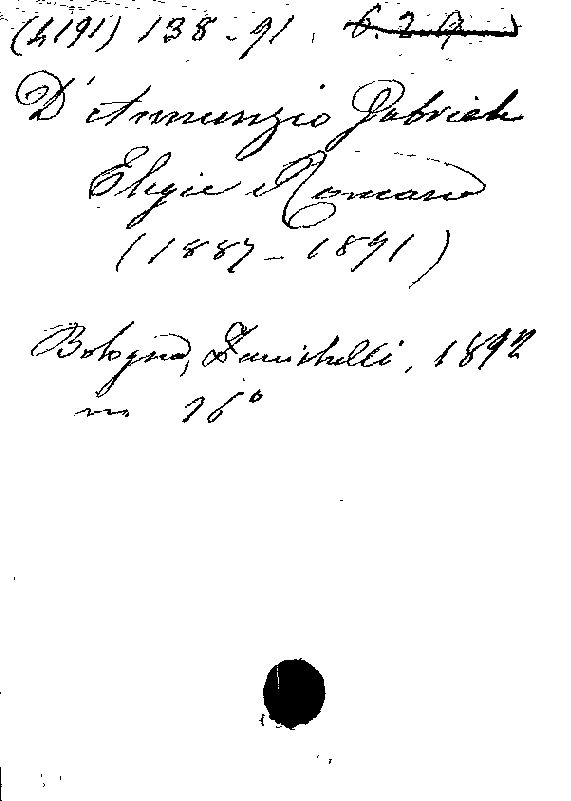 (4191) 138-91.
D'Annunzio Gabriele
Elegie Romane
(1887-1891)
Bologna, Zanichelli, 1892
in 16°